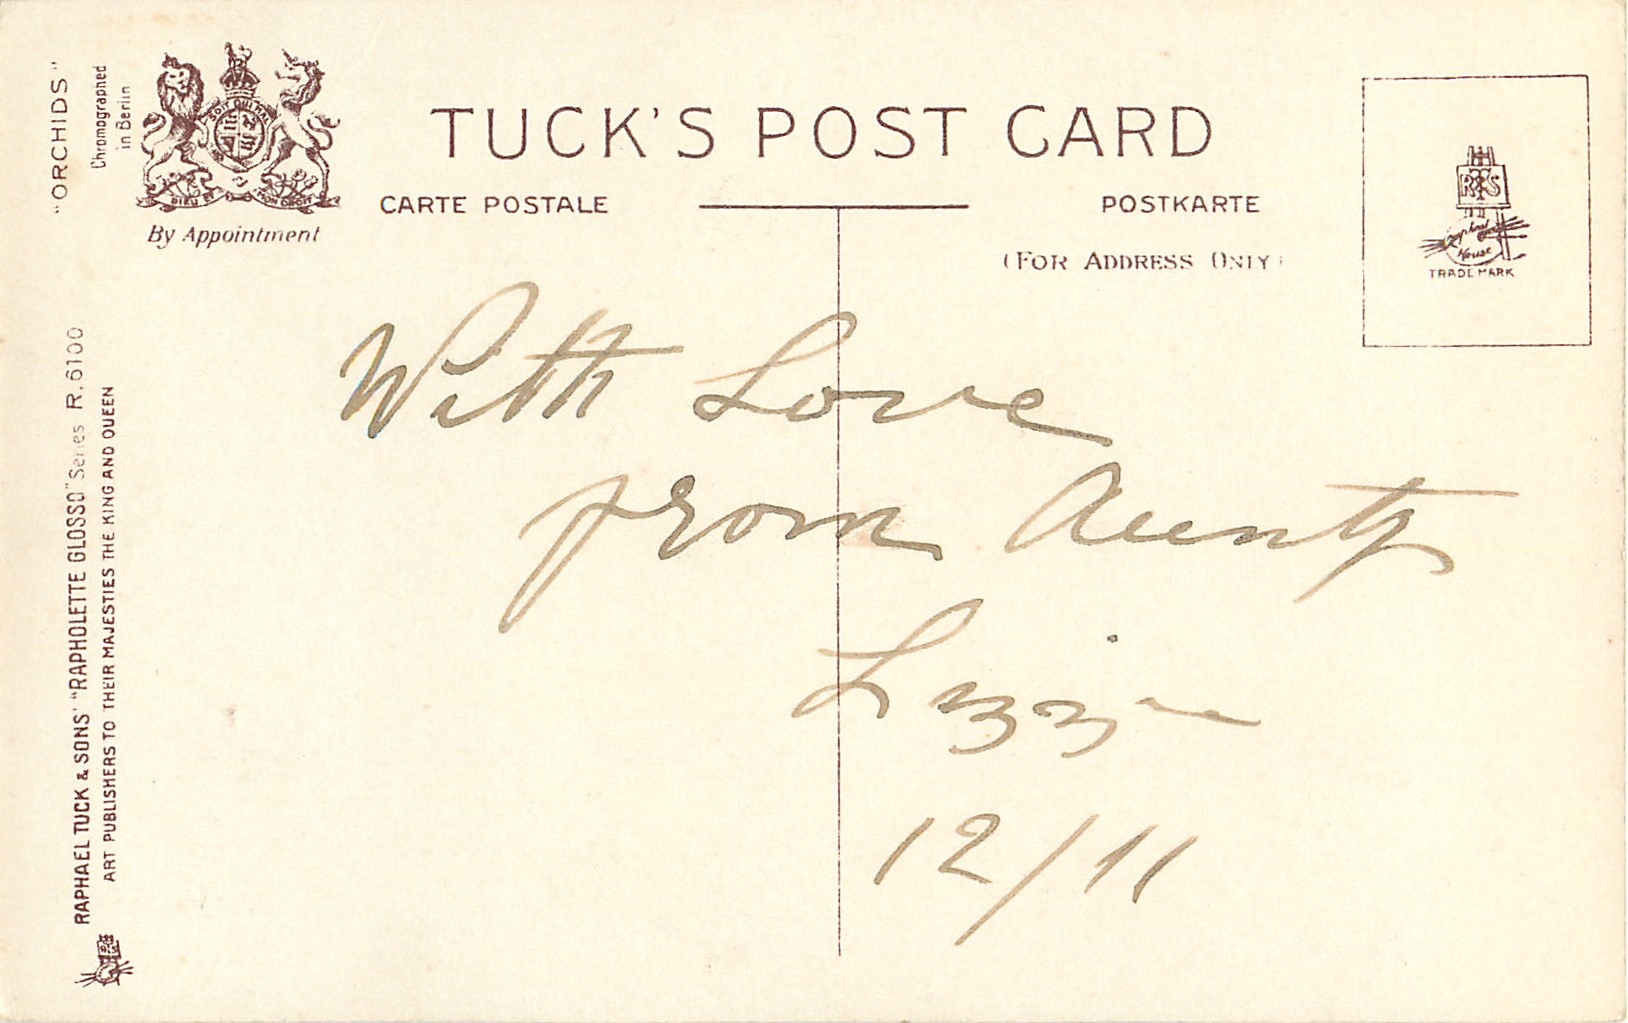 "ORCHIDS"
Chromographed
in Berlin
SOIT QUI MAL
DIEU ET MON DROIT
By Appointment
TUCK'S POST CARD
CARTE POSTALE
POSTKARTE
(FOR ADDRESS ONLY)
R T S
Raphael
House
TRADE MARK
RAPHAEL TUCK & SONS' "RAPHOLETTE GLOSSO" Series R. 6100
ART PUBLISHERS TO THEIR MAJESTIES THE KING AND QUEEN
With Love
from Aunty
Lizzie
12/11